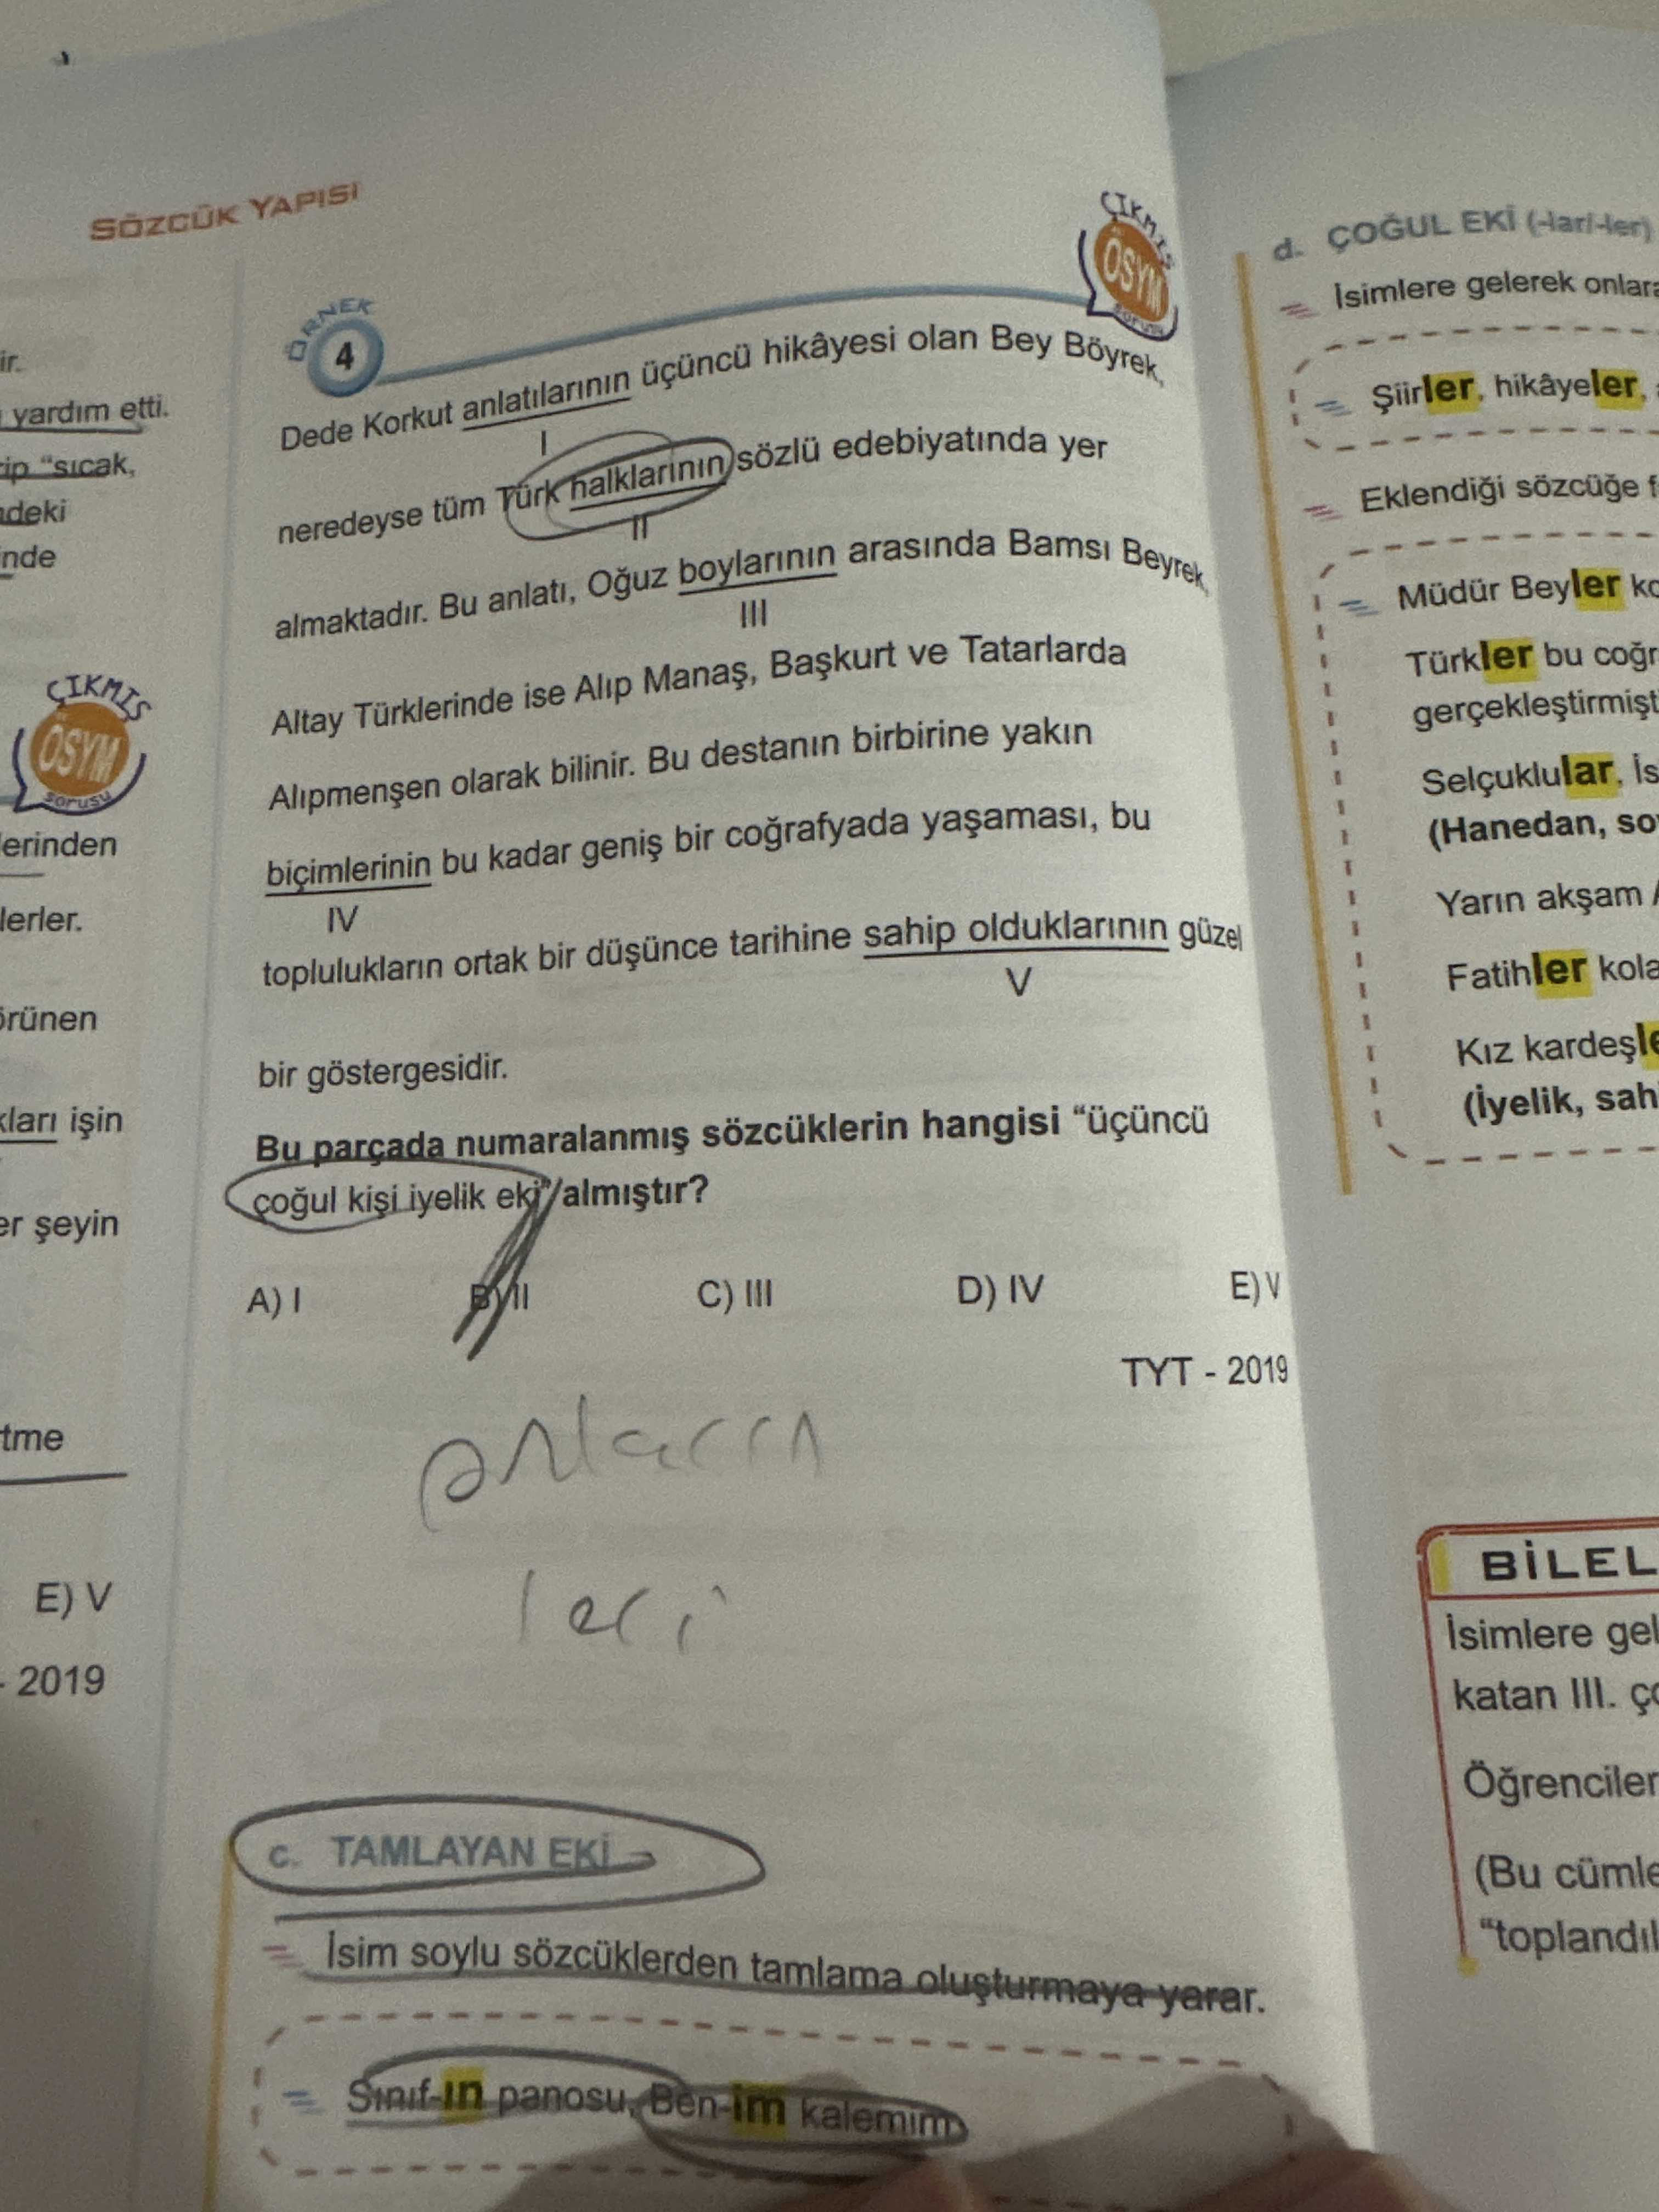 SÖZCÜK YAPISI
ir.
yardım etti.
ip "sıcak,
deki
inde
ÇIKMIŞ
ÖSYM
sorusu
lerinden
lerler.
örünen
kları işin
er şeyin
tme
E) V
- 2019
ÖRNEK
4
ÇIKMIŞ
ÖSYM
sorusu
Dede Korkut anlatılarının üçüncü hikâyesi olan Bey Böyrek,
I
neredeyse tüm Türk halklarının sözlü edebiyatında yer
II
almaktadır. Bu anlatı, Oğuz boylarının arasında Bamsı Beyrek,
III
Altay Türklerinde ise Alıp Manaş, Başkurt ve Tatarlarda
Alıpmenşen olarak bilinir. Bu destanın birbirine yakın
biçimlerinin bu kadar geniş bir coğrafyada yaşaması, bu
IV
toplulukların ortak bir düşünce tarihine sahip olduklarının güzel
V
bir göstergesidir.
Bu parçada numaralanmış sözcüklerin hangisi "üçüncü
çoğul kişi iyelik eki" almıştır?
A) I B) II C) III D) IV E) V
TYT - 2019
onların
leri
c. TAMLAYAN EKİ
İsim soylu sözcüklerden tamlama oluşturmaya yarar.
Sınıf-ın panosu, Ben-im kalemim
d. ÇOĞUL EKİ (-lar/-ler)
İsimlere gelerek onlara
Şiirler, hikâyeler,
Eklendiği sözcüğe f
Müdür Beyler ko
Türkler bu coğr
gerçekleştirmişt
Selçuklular, İs
(Hanedan, so
Yarın akşam A
Fatihler kola
Kız kardeşle
(İyelik, sah
BİLEL
İsimlere gel
katan III. ço
Öğrenciler
(Bu cümle
"toplandıl